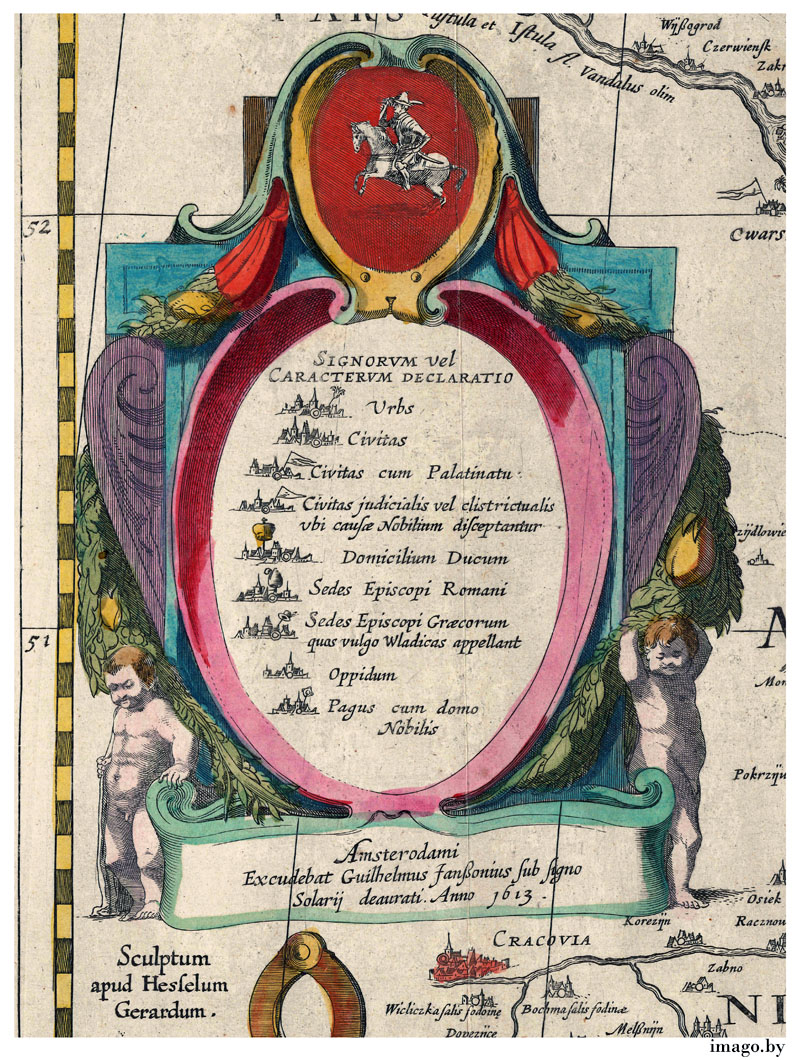 PARS
Vistula et Istula fl. Vandalus olim
Wißogrod
Czerwiensk
Zakr
52
Cwars
SIGNORVM vel
CARACTERVM DECLARATIO
Vrbs
Civitas
Civitas cum Palatinatu
Civitas judicialis vel districtualis
vbi causæ Nobilium disceptantur
Domicilium Ducum
Sedes Episcopi Romani
Sedes Episcopi Græcorum
quos vulgo Wladicas appellant
Oppidum
Pagus cum domo
Nobilis
zÿdlowie
51
Mon
Pokrzÿu
Amsterodami
Excudebat Guilhelmus Janßonius sub signo
Solarij deaurati. Anno 1613.
Osiek
Korezÿn
Racznow
CRACOVIA
Zabno
Sculptum
apud Hesselum
Gerardum.
Wicliczka salis fodine
Bochma salis fodinæ
NI
Melßnÿn
imago.by